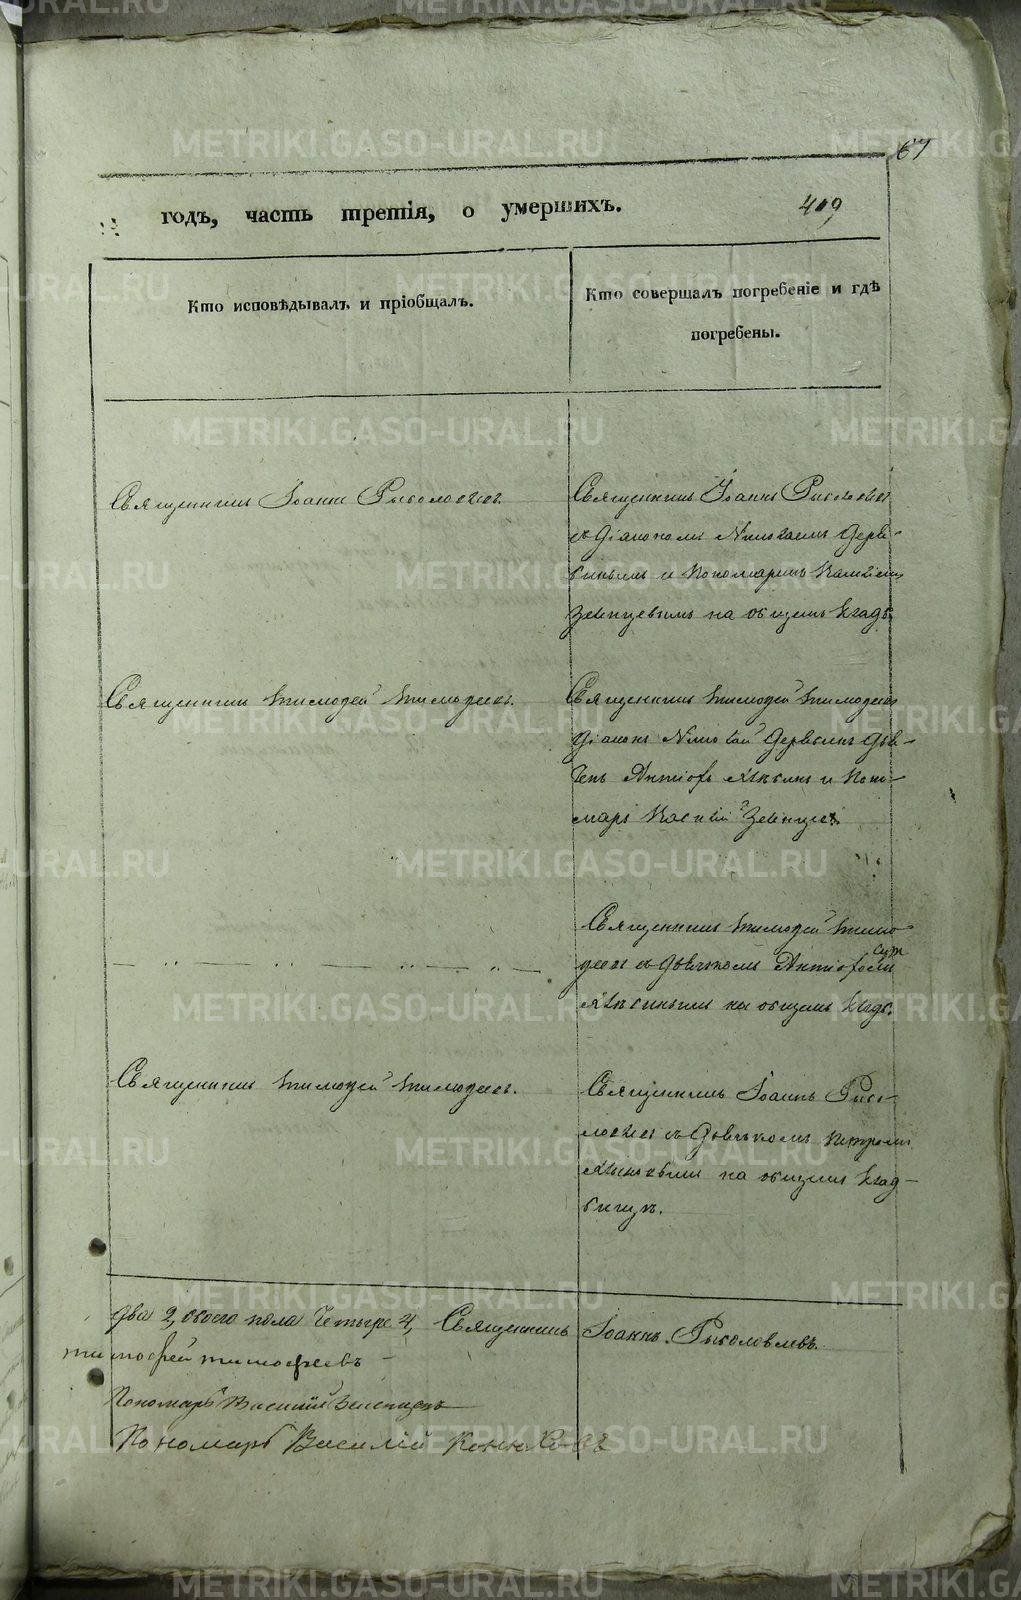 67
годъ, часть третія, о умершихъ.
409
Кто исповѣдывалъ и пріобщалъ.
Кто совершалъ погребеніе и гдѣ
погребены.
Священникъ Іоаннъ Рыболовлев.
Священникъ Іоаннъ Рыболовлев
съ Діакономъ Николаемъ Деря-
бинымъ и Пономаремъ Василіем
Зеленцевымъ на общемъ кладб.
Священникъ Тимофей Тимофеевъ.
Священникъ Тимофей Тимофеевъ
Діаконъ Николай Дерябинъ Дья-
чекъ и Поно-
марь Василій Зеленцев.
Священникъ Тимофей Тимо-
феевъ съ Дьячкомъ
на общемъ кладб.
Священникъ Тимофей Тимофеевъ.
Священникъ Іоаннъ Рыбо-
ловлев съ Дьячкомъ Петромъ
на общемъ клад-
бищѣ.
два 2, обоего пола четыре 4, Священникъ Іоаннъ Рыболовлевъ.
тимофей тимофеевъ
Пономарь Василій Зеленцевъ
Пономарь Василій Конюховъ
METRIKI.GASO-URAL.RU